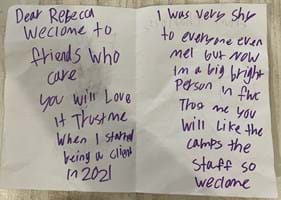 Dear Rebecca
Weclome to
friends who
care
you will Love
It Trust me
When I started
being a client
in 2021
I was very shy
to everyone even
me! but now
Im a big bright
Person in fwc
Trust me you
Will like the
camps the
staff so
weclome